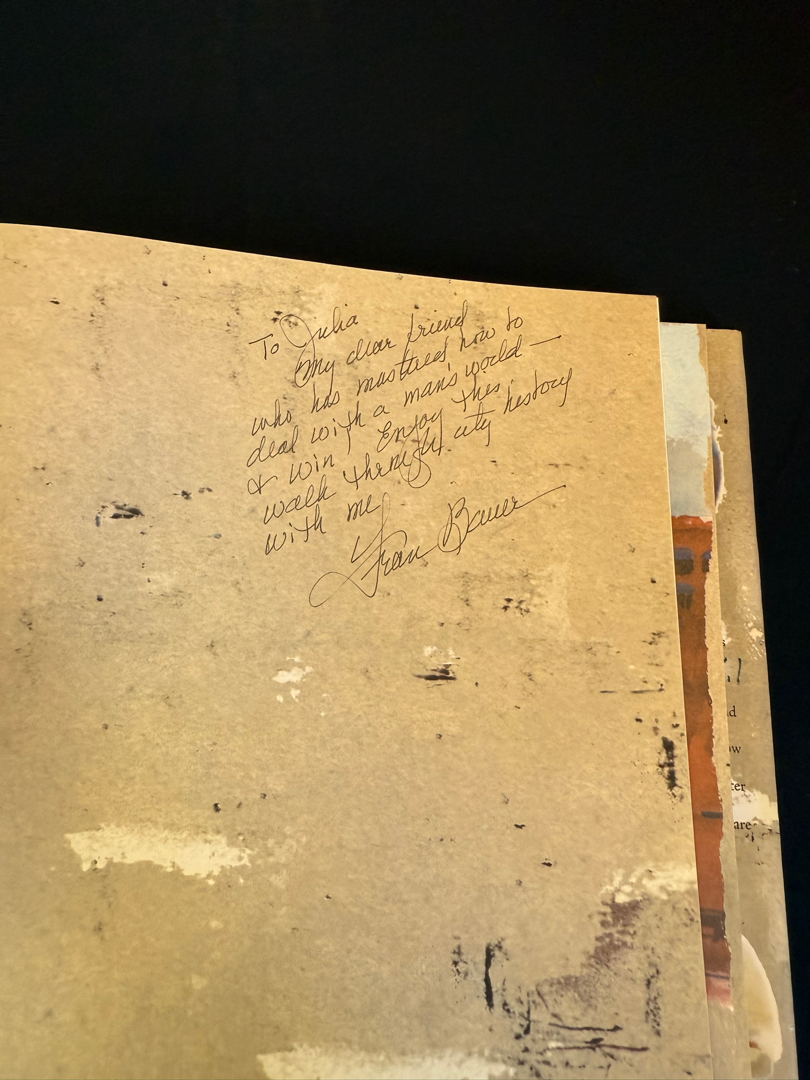 To Julia
My dear friend
who has mastered how to
deal with a man's world —
& win! Enjoy this
walk through city history
with me
Fran Bauer
d
ow
ter
are